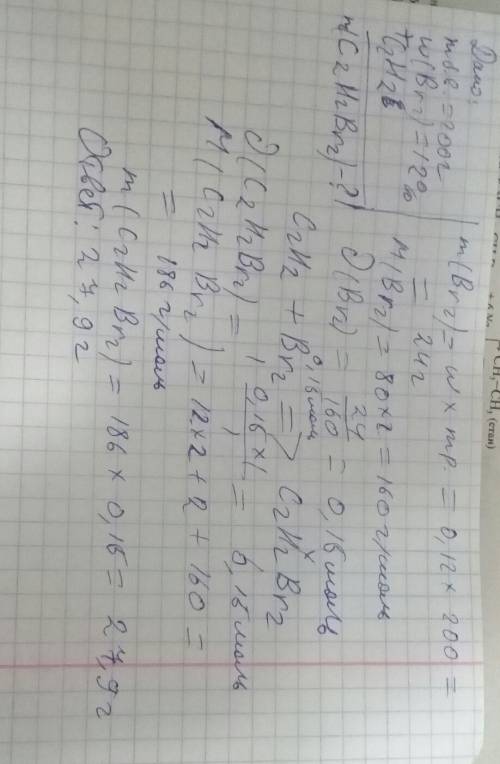 Дано:
mв.в. = 200г
w(Br2) = 12%
+C2H2
m(C2H2Br2) - ?
m(Br2) = w × mр. = 0,12 × 200 =
= 24г
M(Br2) = 80×2 = 160 г/моль
∂(Br2) = 24/160 = 0,15 моль
0,15 моль x
C2H2 + Br2 => C2H2Br2
1 1
∂(C2H2Br2) = 0,15 × 1 / 1 = 0,15 моль
M(C2H2Br2) = 12×2 + 2 + 160 =
= 186 г/моль
m(C2H2Br2) = 186 × 0,15 = 27,9 г
Ответ: 27,9 г
CH3 (стан)